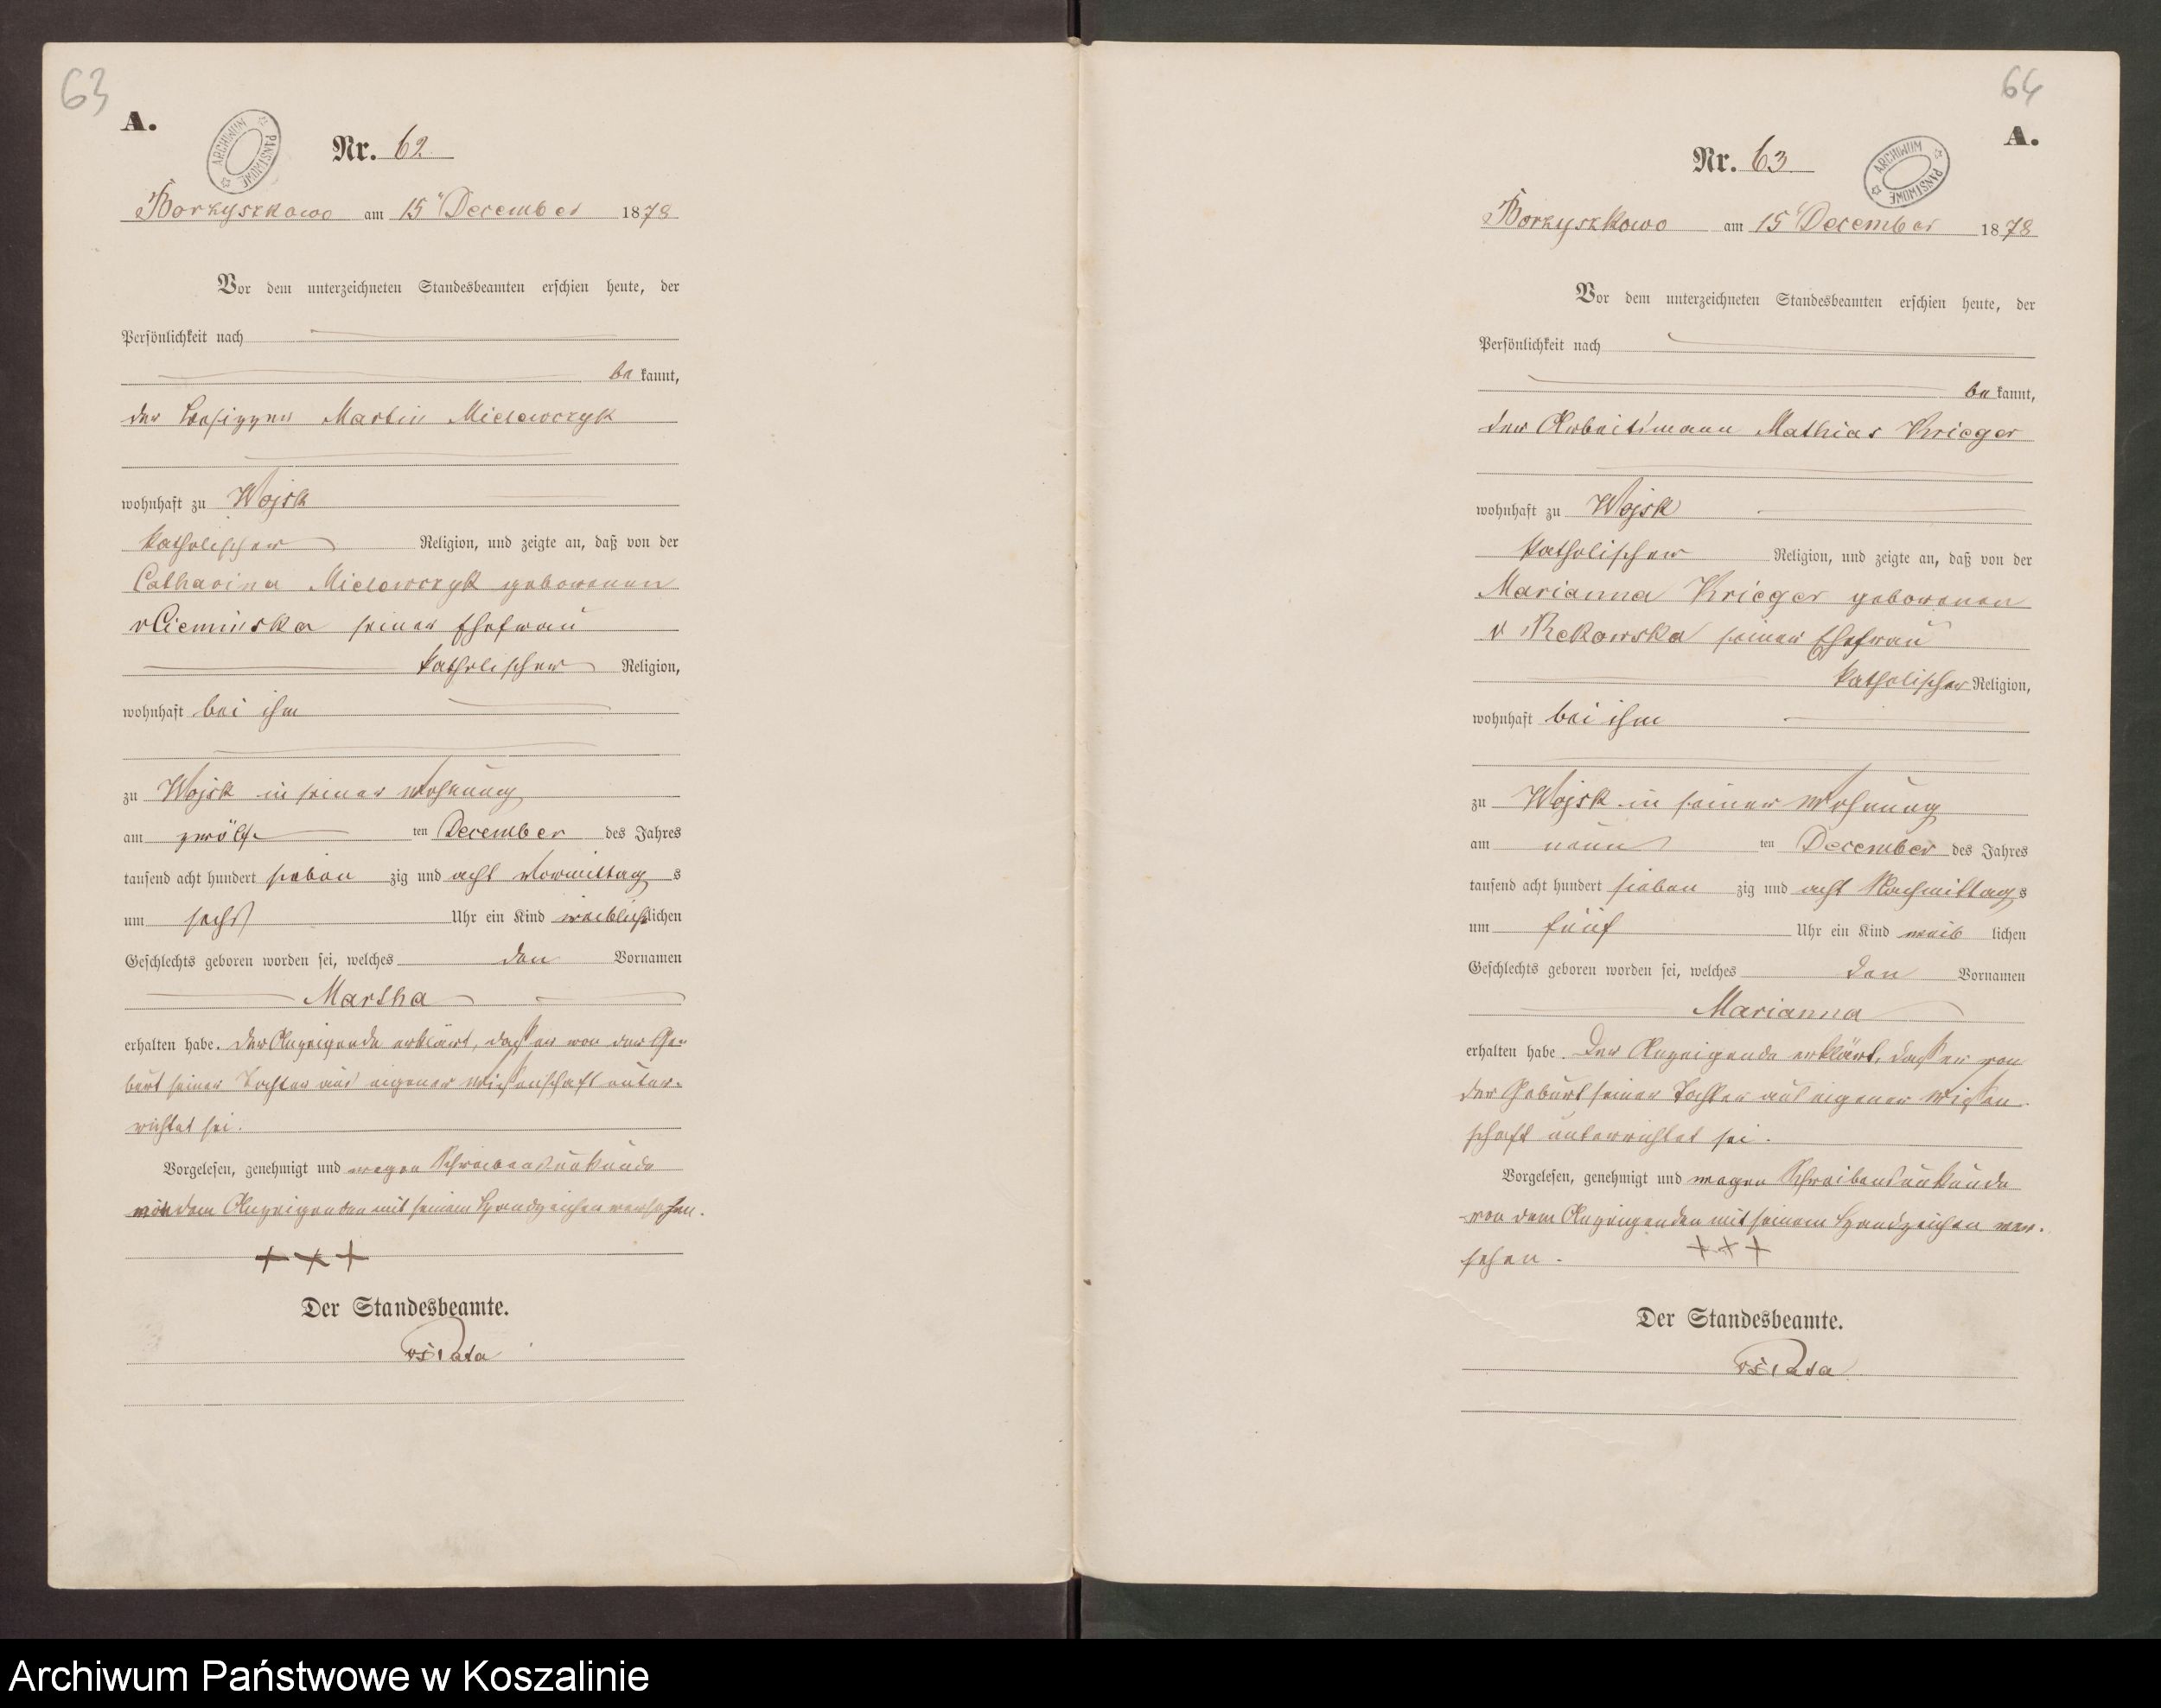 63
A.
ARCHIWUM PAŃSTWOWE
Nr. 62
Borzyszkowo am 15 December 1878
Vor dem unterzeichneten Standesbeamten erschien heute, der
Persönlichkeit nach
be kannt,
der Martin Mielewczyk
wohnhaft zu Wojsk
katholischer Religion, und zeigte an, daß von der
Catharina Mielewczyk geborenen
v Cieminska seiner Ehefrau
katholischer Religion,
wohnhaft bei ihm
zu Wojsk in seiner Wohnung
am zwölf ten December des Jahres
tausend acht hundert sieben zig und acht Vormittag s
um sechs Uhr ein Kind weiblich lichen
Geschlechts geboren worden sei, welches den Vornamen
Martha
erhalten habe. Der Anzeigende erklärt, daß er von der Ge-
burt seiner Tochter aus eigener Wissenschaft unter-
richtet sei.
Vorgelesen, genehmigt und wegen Schreibensunkunde
von dem Anzeigenden mit seinem Handzeichen versehen.
+++
Der Standesbeamte.
64
A.
Nr. 63
ARCHIWUM PAŃSTWOWE
Borzyszkowo am 15 December 1878
Vor dem unterzeichneten Standesbeamten erschien heute, der
Persönlichkeit nach
be kannt,
der Arbeitsmann Mathias Krieger
wohnhaft zu Wojsk
katholischer Religion, und zeigte an, daß von der
Marianna Krieger geborenen
v Rekowska seiner Ehefrau
katholischer Religion,
wohnhaft bei ihm
zu Wojsk in seiner Wohnung
am neun ten December des Jahres
tausend acht hundert sieben zig und acht Nachmittag s
um fünf Uhr ein Kind weib lichen
Geschlechts geboren worden sei, welches den Vornamen
Marianna
erhalten habe. Der Anzeigende erklärt, daß er von
der Geburt seiner Tochter aus eigener Wissen-
schaft unterrichtet sei.
Vorgelesen, genehmigt und wegen Schreibensunkunde
von dem Anzeigenden mit seinem Handzeichen ver-
sehen. +++
Der Standesbeamte.
Archiwum Państwowe w Koszalinie